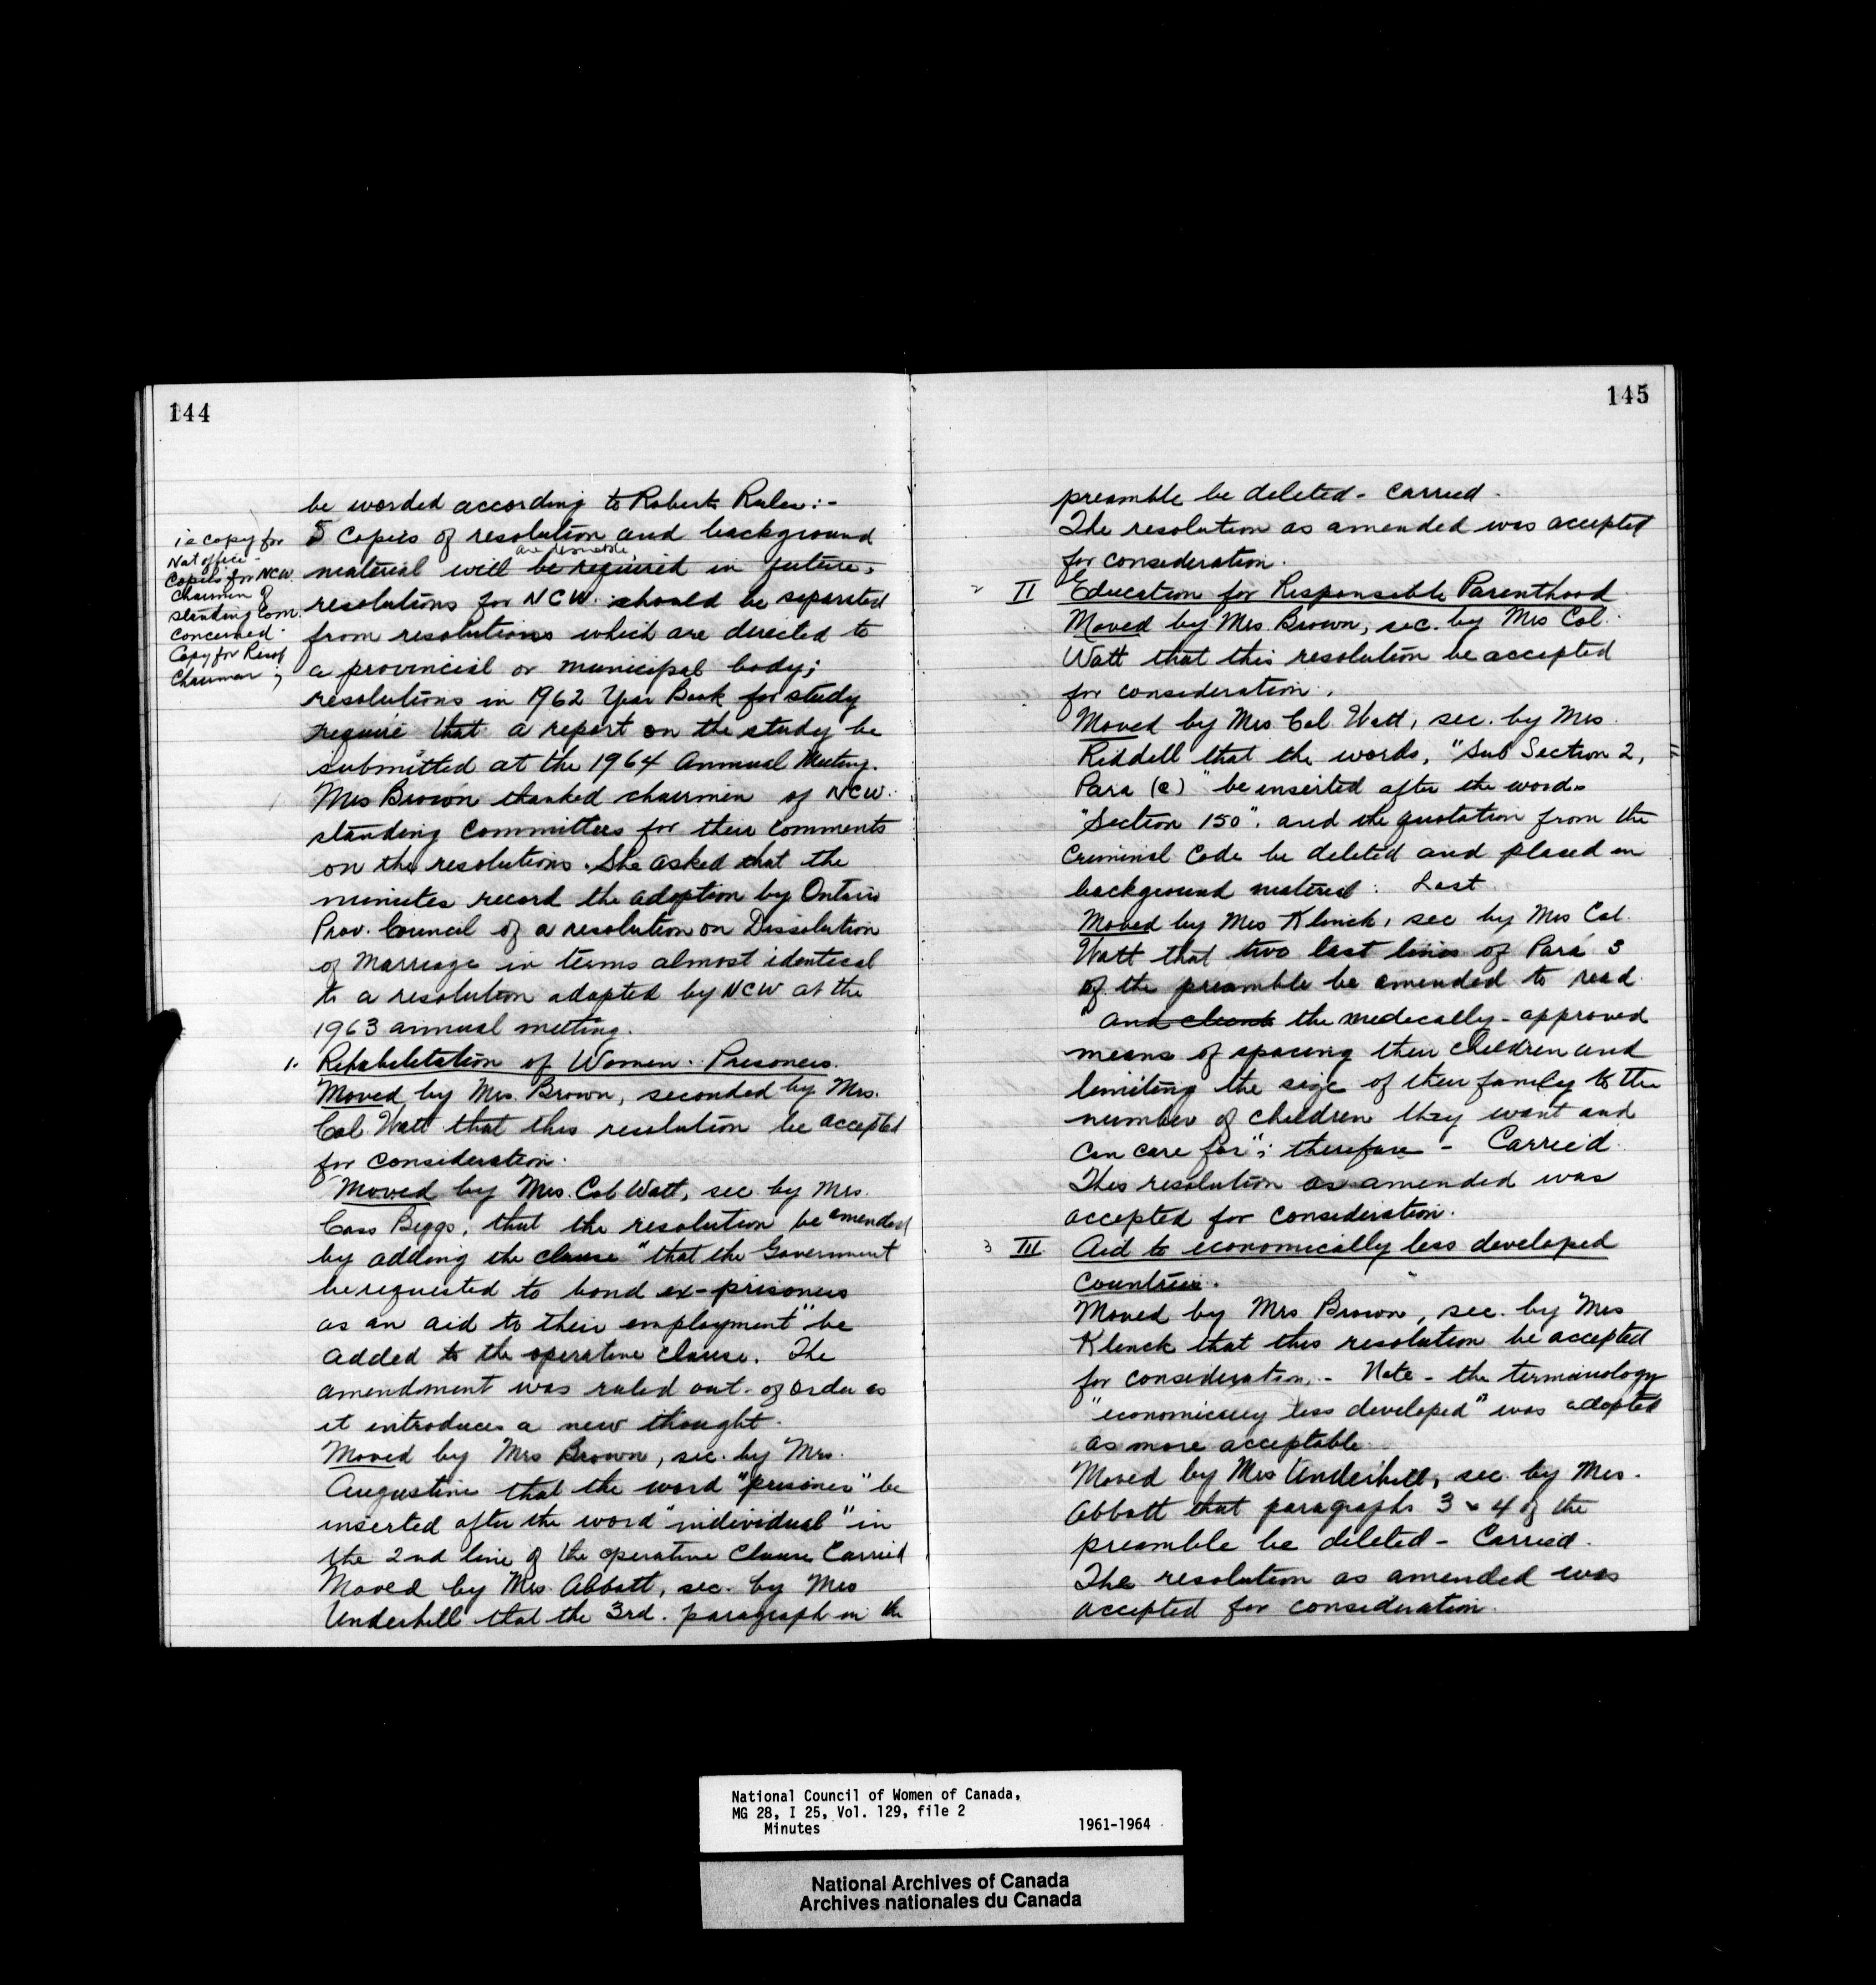 144
be worded according to Roberts Rules:-
i e copy for
Nat office -
Copies for NCW.
Chairmen of
standing Com.
concerned -
Copy for Resol
Chairman ;
5 Copies of resolution and background
are desirable,
material will be required in future;
resolutions for NCW. should be separated
from resolutions which are directed to
a provincial or municipal body;
resolutions in 1962 Year Book for study
require that a report on the study be
submitted at the 1964 Annual Meeting.
Mrs Brown thanked chairmen of NCW.
standing Committees for their comments
on the resolutions. She asked that the
minutes record the adoption by Ontario
Prov. Council of a resolution on Dissolution
of Marriage in terms almost identical
to a resolution adopted by NCW at the
1963 annual meeting.
1. Rehabilitation of Women Prisoners.
Moved by Mrs. Brown, seconded by Mrs.
Col. Watt that this resolution be accepted
for consideration.
Moved by Mrs. Col Watt, sec. by Mrs.
Cass Beggs, that the resolution be amended
by adding the clause "that the Government
be requested to bond ex-prisoners
as an aid to their employment" be
added to the operative clause. The
amendment was ruled out of order as
it introduces a new thought.
Moved by Mrs Brown, sec. by Mrs.
Augustine that the word "prisoner" be
inserted after the word "individual" in
the 2nd line of the operative clause Carried
Moved by Mrs. Abbott, sec. by Mrs
Underhill that the 3rd. paragraph in the
145
preamble be deleted - Carried.
The resolution as amended was accepted
for consideration.
2 II Education for Responsible Parenthood
Moved by Mrs. Brown, sec. by Mrs Col.
Watt that this resolution be accepted
for consideration.
Moved by Mrs Col. Watt, sec. by Mrs.
Riddell that the words, "Sub Section 2,
Para (c)" be inserted after the words
"Section 150", and the quotation from the
Criminal Code be deleted and placed in
background material: Lost.
Moved by Mrs Klinck, sec by Mrs Col.
Watt that two last lines of Para 3
of the preamble be amended to read
"and the medically-approved
means of spacing their children and
limiting the size of their family to the
number of children they want and
can care for"; therefore - Carried.
This resolution as amended was
accepted for consideration.
3 III Aid to economically less developed
Countries.
Moved by Mrs Brown, sec. by Mrs
Klinck that this resolution be accepted
for consideration. - Note - the terminology
"economically less developed" was adopted
as more acceptable.
Moved by Mrs Underhill, sec. by Mrs.
Abbott that paragraphs 3 & 4 of the
preamble be deleted - Carried.
The resolution as amended was
accepted for consideration.
National Council of Women of Canada,
MG 28, I 25, Vol. 129, file 2
Minutes 1961-1964
National Archives of Canada
Archives nationales du Canada